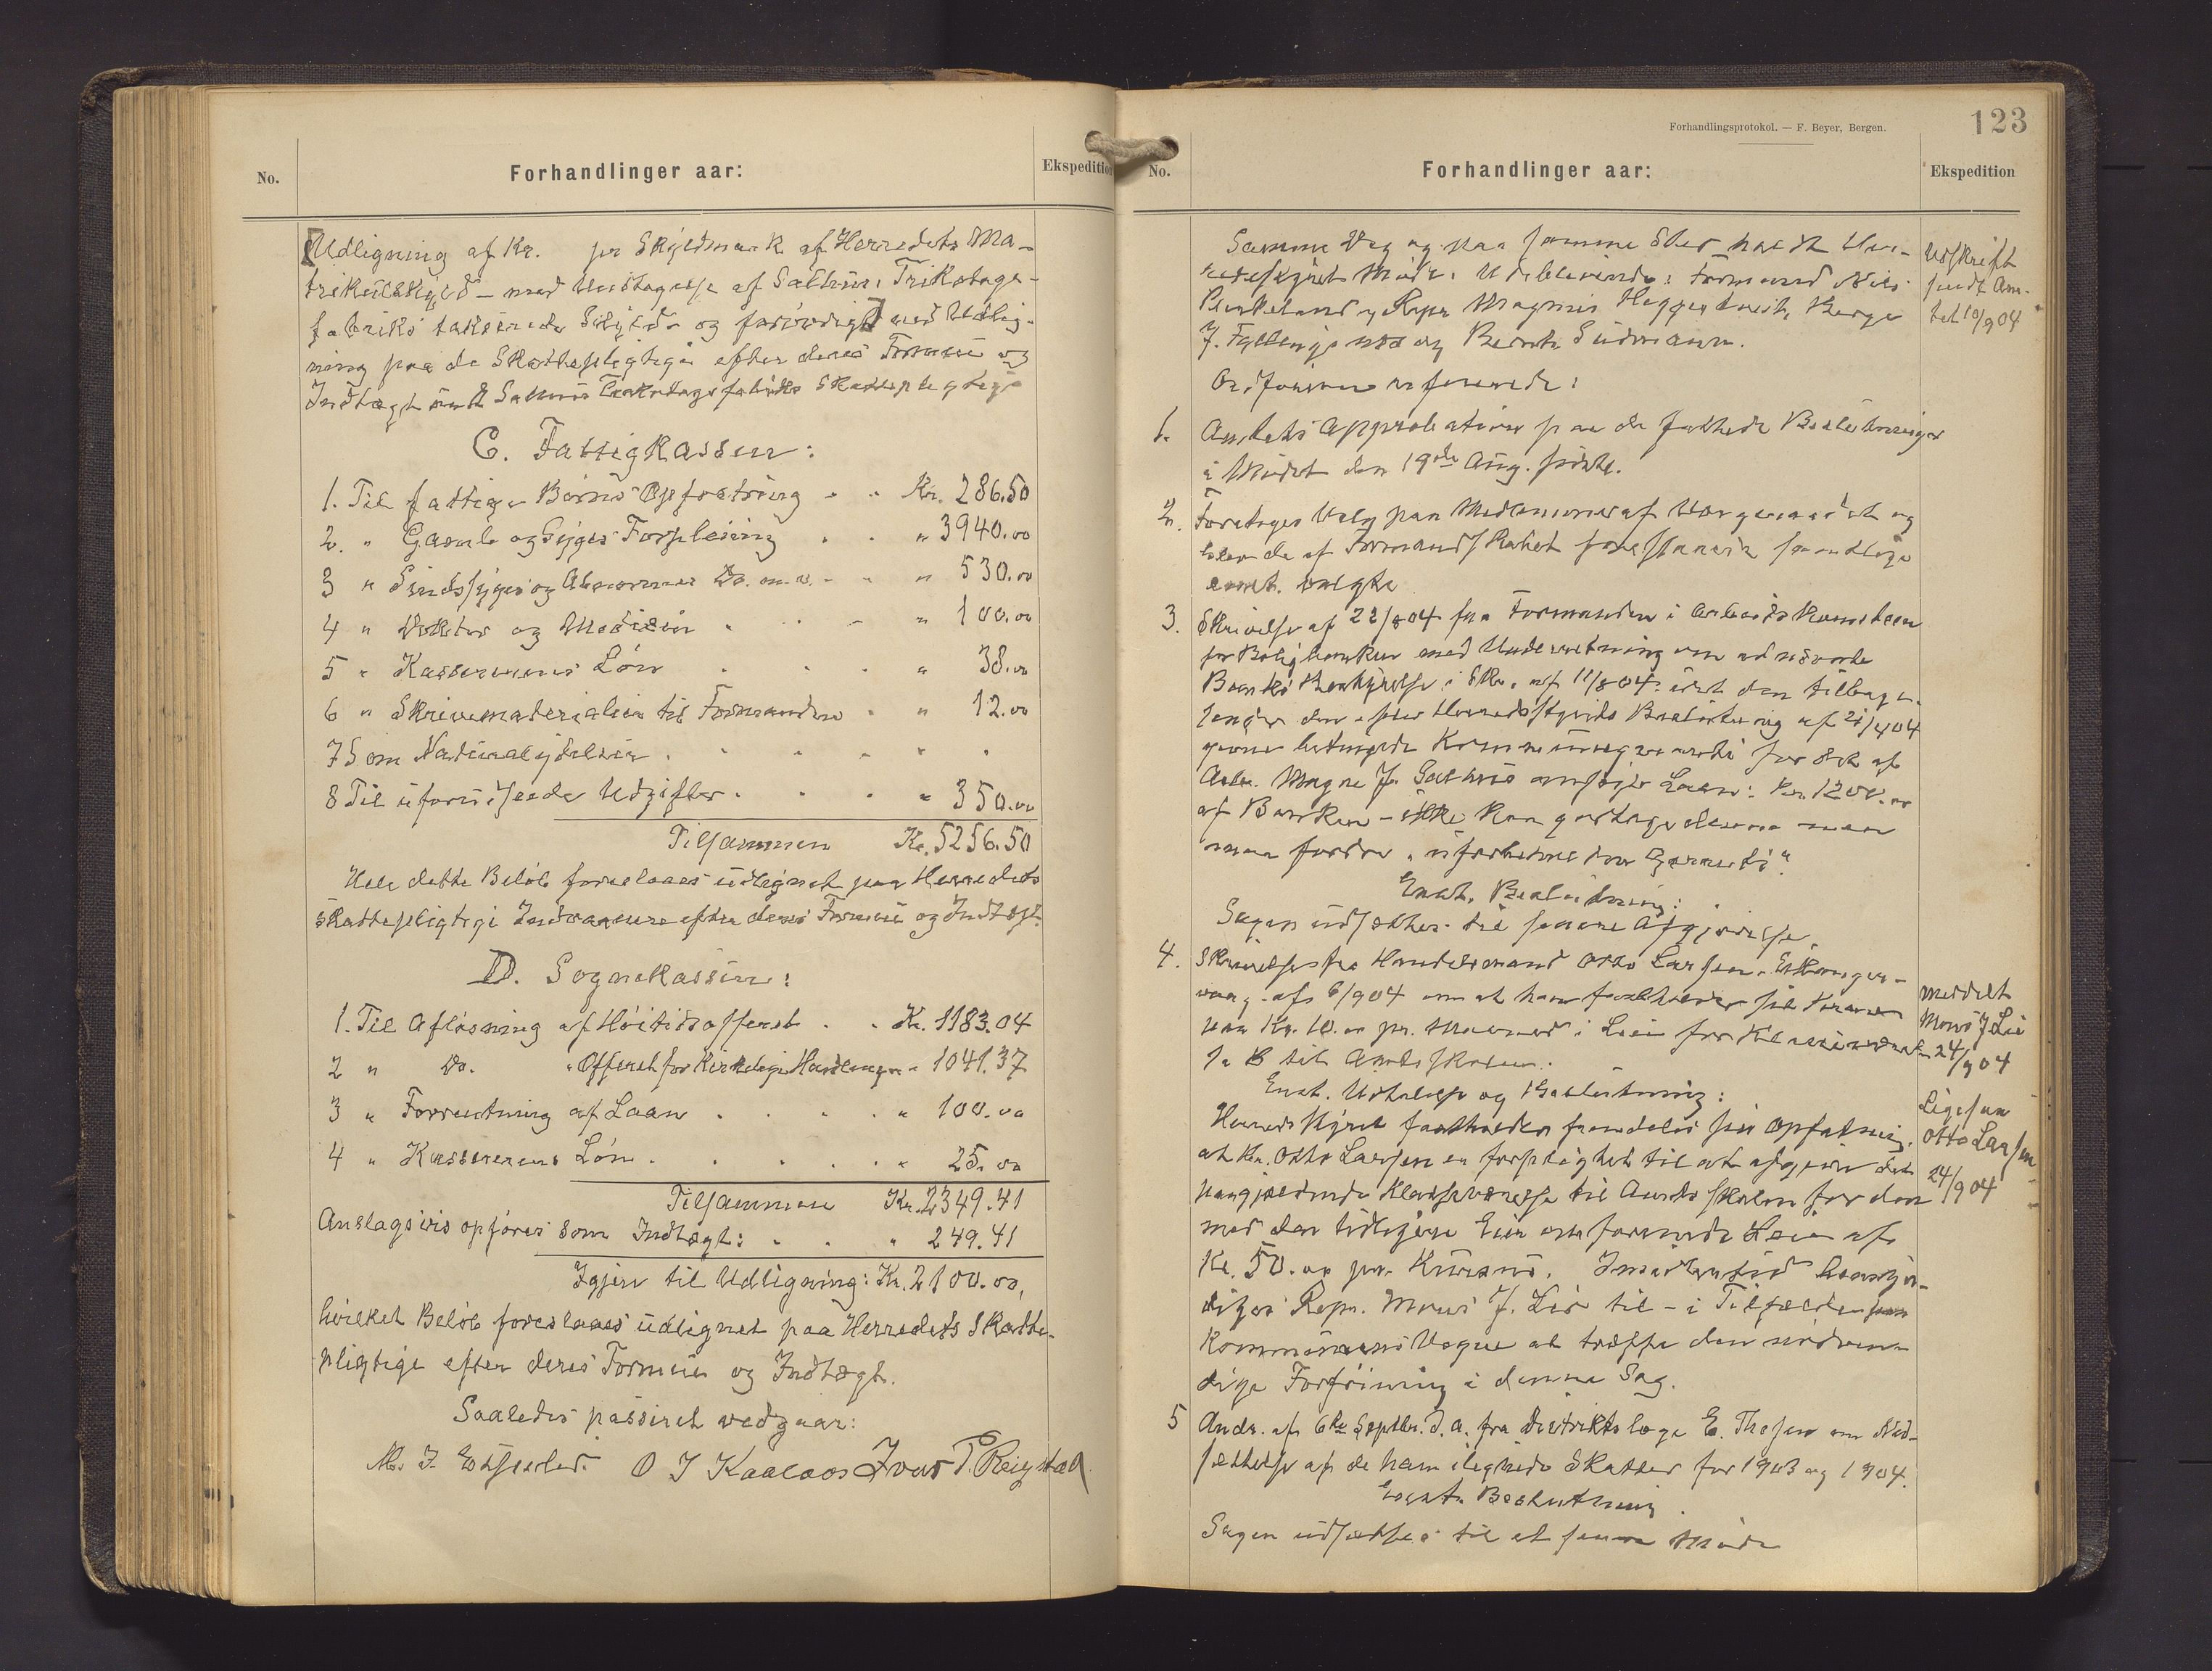 No.
Forhandlinger aar:
Ekspedition
[Udligning af Kr. pr Skyldmark af Herredets Ma-
trikulskyld - med Undtagelse af Salhus Trikotage-
fabriks takserede Skyld - og forøvrigt] ved Udlig-
ning paa de Skattepligtige efter deres Formue og
Indtægt Salhus Trikotagefabriks Skattepligtige
C. Fattigkassen:
1. Til fattige Børns Opfostring " " Kr. 286.50
2. " Gamle og Syges Forpleining . . " 3940.00
3 " Sindssyges og Abnormes Do. m.v. - - " 530.00
4 " Doktor og Medisin . . - " 100.00
5 " Kassererens Løn . . . " 38.00
6 " Skrivematerialier til Formanden . " 12.00
7 Som Naturalydelser . . . " .
8 Til uforudseede Udgifter . . . " 350.00
Tilsammen Kr. 5256.50
Hele dette Beløb foreslaaes udlignet paa Herredets
skattepligtige Indvaanere efter deres Formue og Indtægt.
D. Sognekassen:
1. Til Afløsning af Høitidsofferet . . Kr. 1183.04
2 " Do. " Offeret for Kirkelige Handlinger " 1041.37
3 " Forrentning af Laan . . . . " 100.00
4 " Kassererens Løn . . . . . " 25.00
Tilsammen Kr. 2349.41
Anslagsvis opføres som Indtægt: . . " 249.41
Igjen til Udligning: Kr. 2100.00,
hvilket Beløb foreslaaes udlignet paa Herredets Skatte-
pligtige efter deres Formue og Indtægt.
Saaledes passeret vedgaar:
M. J. O J Kaalaas Ivar P. Reigstad
Forhandlingsprotokol. — F. Beyer, Bergen.
123
No.
Forhandlinger aar:
Ekspedition
Samme Dag og paa samme Sted holdt Her-
redsstyret Møde. Udeblivende: Formand Nils
og Repr. Magnus Berge
J. og Bernt
Ordføreren refererede:
1. Amtets Approbation paa de fattede Beslutninger
i Mødet den 19de Aug. sidstl.
2. Foretoges Valg paa Medlemmer af Værgeraadet og
blev de af Formandskabet foreslaaede samtlige
enst. valgte
3. Skrivelse af 22/8 04 fra Formanden i Arbeidskomiteen
for Boligbanken med Underretning om at nævnte
Banks Bestyrelse i Skr. af 11/8 04 idet den tilbage-
sender den efter Herredsstyrets Beslutning af 21/4 04
givne betingede Kommunegaranti for det af
Arb. Magne J. Salhus ansøgte Laan: Kr. 1200.00
af Banken - ikke kan godtage denne men
maa fordre "uforbeholden Garanti".
Enst. Beslutning:
Sagen udsættes til senere Afgjørelse.
4. Skrivelse fra Handelsmand Otto Larsen -
vaag - af 6/9 04 om at han fastholder sit Krav
paa Kr. 10.00 pr. Maaned i Leie for Klasseværel-
se til Amtsskolen.
Enst. Udtalelse og Beslutning:
Herredsstyret fastholder fremdeles sin Opfatning,
at Hr. Otto Larsen er forpligtet til at afgive det
paagjældende Klasseværelse til Amtsskolen for den
med den tidligere Eier omforenede Leie af
Kr. 50.00 pr. Kursus. Imidlertid bemyn-
diges Repr. Mons J. Lie til - i Tilfælde
Kommunens Vegne at træffe den nødven-
dige Forføining i denne Sag.
5 Andr. af 6te Septbr. d.a. fra Distriktslæge E. Thesen om Ned-
sættelse af de ham ilignede Skatter for 1903 og 1904.
Enst. Beslutning.
Sagen udsættes til et senere Møde
Udskrift
sendt Am-
tet 10/9 04
Meddelt
Mons J Lie
24/9 04
Ligesaa
Otto Larsen
24/9 04